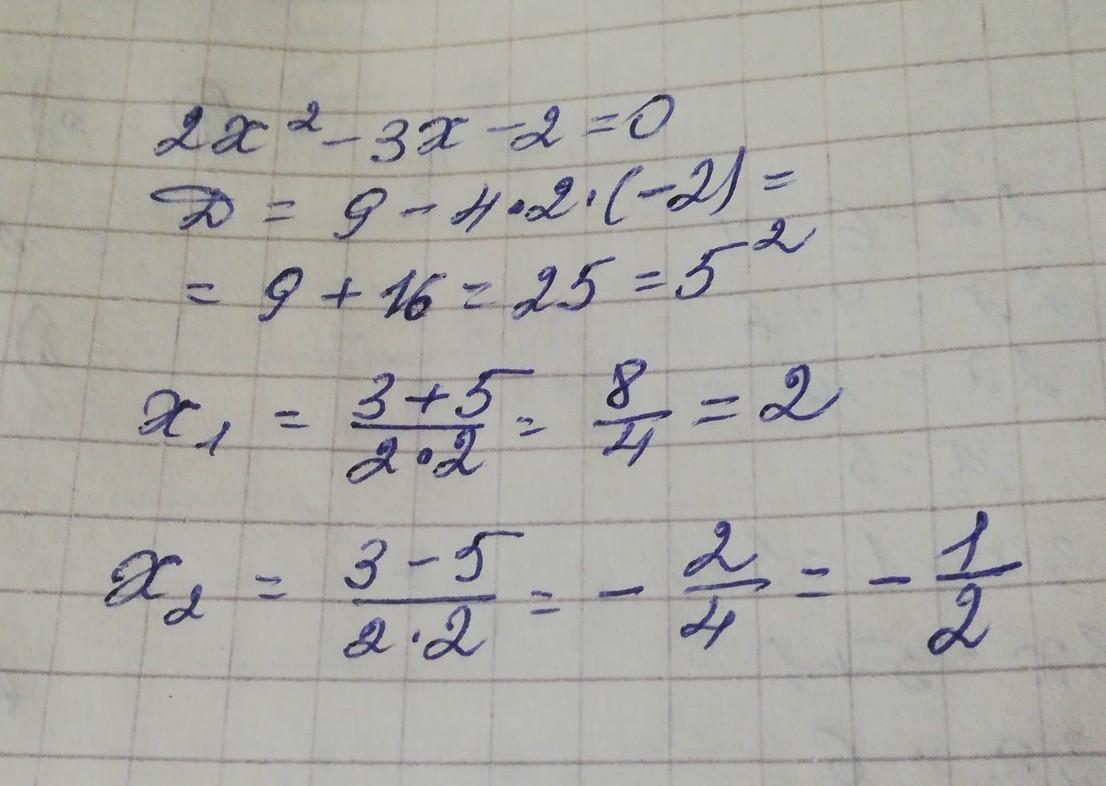 2x² - 3x - 2 = 0
D = 9 - 4·2·(-2) =
= 9 + 16 = 25 = 5²
x₁ = (3+5)/(2·2) = 8/4 = 2
x₂ = (3-5)/(2·2) = - 2/4 = - 1/2